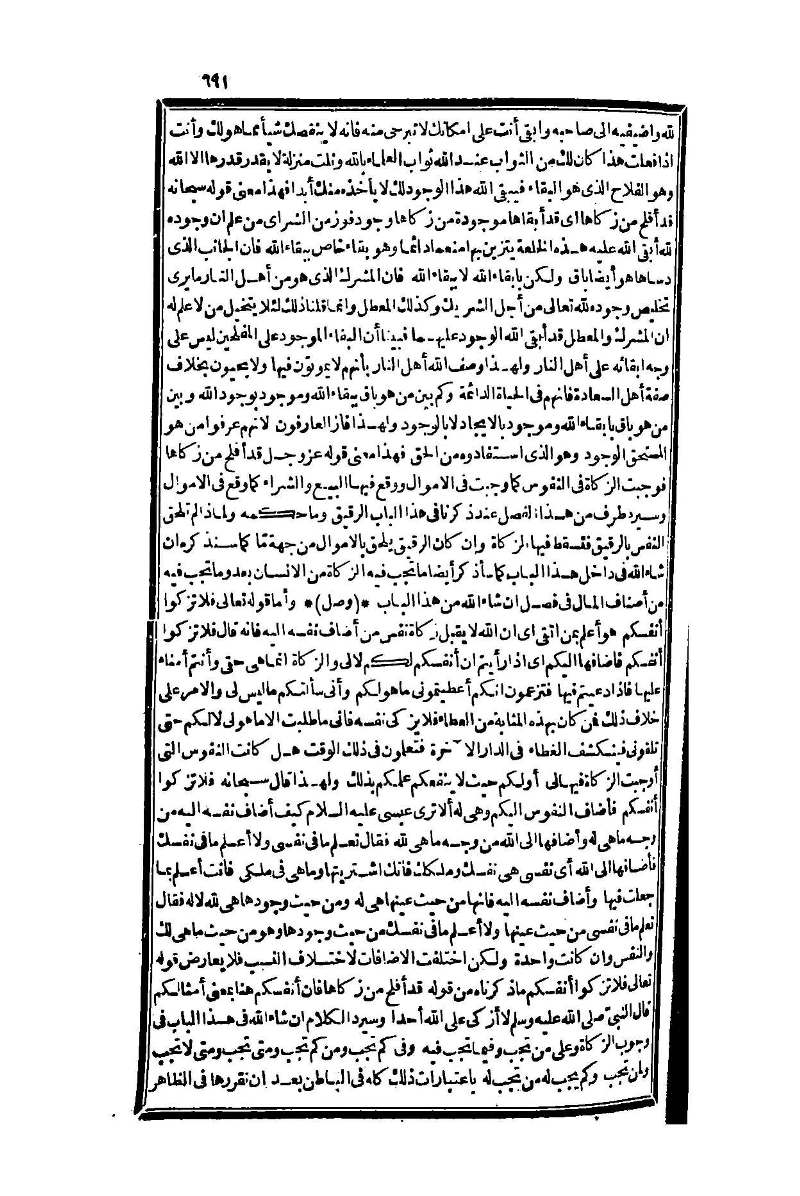 ٦٩١
لله واضيفيه الى صاحبه وابقى أنت على امكانك لا تبرحى منه فانه لا ينقصك شيأ مما هو لك وأنت
اذا فعلت هذا كان لك من الثواب عند الله ثواب العلماء بالله ونلت منزلة لا يقدر قدرها الا الله
وهو الفلاح الذى هو البقاء فيبقى الله هذا الوجود لك لا يأخذه منك أبدا فهذا معنى قوله سبحانه
قد أفلح من زكاها اى قد أبقاها موجودة من زكاها وجود فوز من الشر اى من علم ان وجوده
لله أبقى الله عليه هذه الخلعة يتزين بها منعما دائما وهو بقاء خاص ببقاء الله فان الخائب الذى
دساها هو أيضا باق ولكن بابقاء الله لا ببقاء الله فان المشرك الذى هو من أهل النار ما يرى
تخليص وجوده لله تعالى من أجل الشريك وكذلك المعطل وانما قلنا ذلك لئلا يتخيل من لا علم له
ان المشرك والمعطل قد أبقى الله الوجود عليهما فبينا أن البقاء الموجود على المفلحين ليس على
وجه ابقائه على أهل النار ولهذا وصف الله أهل النار بأنهم لا يموتون فيها ولا يحيون بخلاف
صفة أهل السعادة فانهم فى الحياة الدائمة وكم بين من هو باق ببقاء الله وموجود بوجود الله وبين
من هو باق بابقاء الله وموجود بالايجاد لا بالوجود ولهذا فاز العارفون لانهم عرفوا من هو
المستحق الوجود وهو الذى استفادوه من الحق فهذا معنى قوله عز وجل قد أفلح من زكاها
فوجبت الزكاة فى النفوس كما وجبت فى الاموال ووقع فيها البيع والشراء كما وقع فى الاموال
وسيرد طرف من هذا الفصل عند ذكرنا فى هذا الباب الرقيق وما حكمه ولماذا لم تلحق
النفس بالرقيق فتسقط فيها الزكاة وان كان الرقيق يلحق بالاموال من جهة مّا كما سنذكره ان
شاء الله فى داخل هذا الباب كما سأذكر أيضا ما تجب فيه الزكاة من الانسان بعدد ما تجب فيه
من أصناف المال فى فصل ان شاء الله من هذا الباب *(وصل)* وأما قوله تعالى فلا تزكوا
أنفسكم هو أعلم بمن اتقى اى ان الله لا يقبل زكاة نفس من أضاف نفسه اليه فانه قال فلا تزكوا
أنفسكم فاضافها اليكم اى اذا رأيتم ان أنفسكم لكم لا لى والزكاة انما هى حقى وأنتم أمناء
عليها فاذا ادعيتم فيها فتزعمون انكم أعطيتمونى ما هو لكم وأنى سألتكم ما ليس لى والامر على
خلاف ذلك فمن كان بهذه المثابة من العطاء فلا يزكى نفسه فانى ما طلبت الا ما هو لى لا لكم حتى
تلقونى فينكشف الغطاء فى الدار الآخرة فتعلمون فى ذلك الوقت هل كانت النفوس التى
أوجبت الزكاة فيها لى أو لكم حيث لا ينفعكم علمكم بذلك ولهذا قال سبحانه فلا تزكوا
أنفسكم فأضاف النفوس اليكم وهى له ألا ترى عيسى عليه السلام كيف أضاف نفسه اليه من
وجه ما هى له وأضافها الى الله من وجه ما هى لله فقال تعلم ما فى نفسى ولا أعلم ما فى نفسك
فأضافها الى الله أى نفسى هى نفسك وملكك فانك اشتريتها وما هى فى ملكى فانت أعلم بما
جعلت فيها وأضاف نفسه اليه فانها من حيث عينها هى له ومن حيث وجودها هى لله لا له فقال
تعلم ما فى نفسى من حيث عينها ولا أعلم ما فى نفسك من حيث وجودها وهو من حيث ما هى لك
والنفس وان كانت واحدة ولكن اختلفت الاضافات لاختلاف النسب فلا يعارض قوله
تعالى فلا تزكوا أنفسكم ما ذكرناه من قوله قد أفلح من زكاها فان أنفسكم هنا بمعنى أمثالكم
قال النبىّ صلى الله عليه وسلم لا أزكى على الله أحدا وسيرد الكلام ان شاء الله فى هذا الباب فى
وجوب الزكاة وعلى من تجب وفيما تجب فيه وفى كم تجب ومن كم تجب ومتى تجب ومتى لا تجب
ولمن تجب وكم يجب له من تجب له باعتبارات ذلك كله فى الباطن بعد ان نقررها فى الظاهر